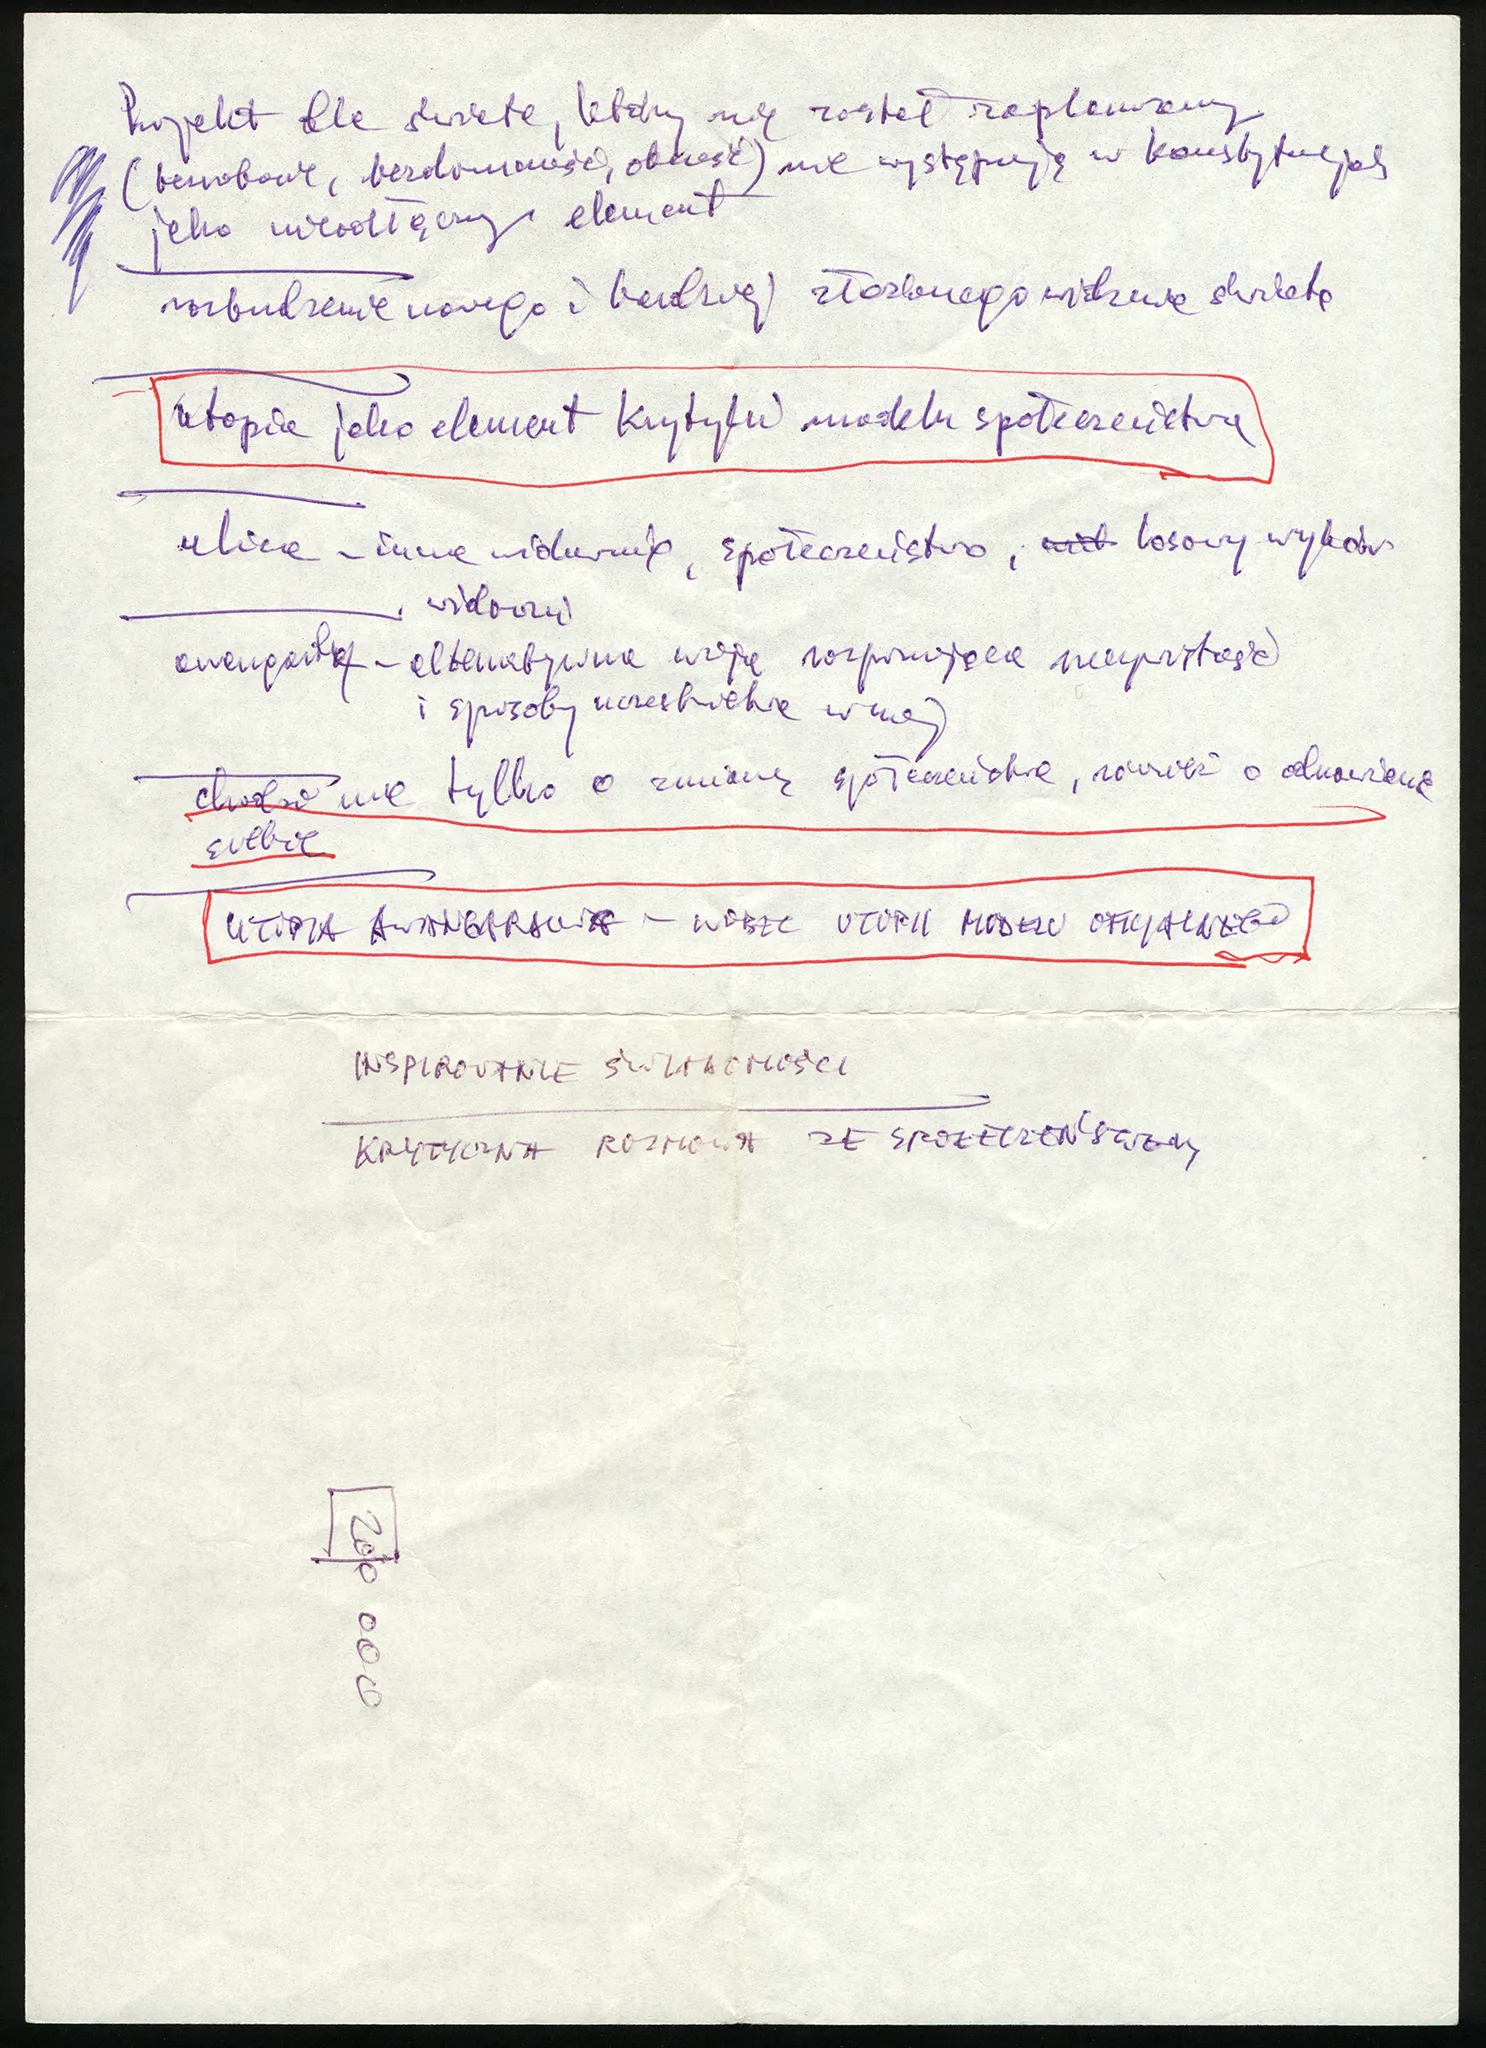 Projekt dla świata, który nie został zaplanowany
(bezrobocie, bezdomność, obcość) nie występują w konstytucjach
jako nieodłączny element
rozbudzenie nowego i bardziej złożonego widzenia świata
utopia jako element krytyki modelu społeczeństwa
ulica – inna widownia, społeczeństwo, losowy wybór
widowni
awangarda – alternatywna wizja rozpoznająca
i sposoby uczestnictwa w niej
chodzi nie tylko o zmianę społeczeństwa, również o odnowienie
siebie
UTOPIA AWANGARDOWA – WOBEC UTOPII MODELU OFICJALNEGO
INSPIROWANIE ŚWIADOMOŚCI
KRYTYCZNA ROZMOWA ZE SPOŁECZEŃSTWEM
200 000